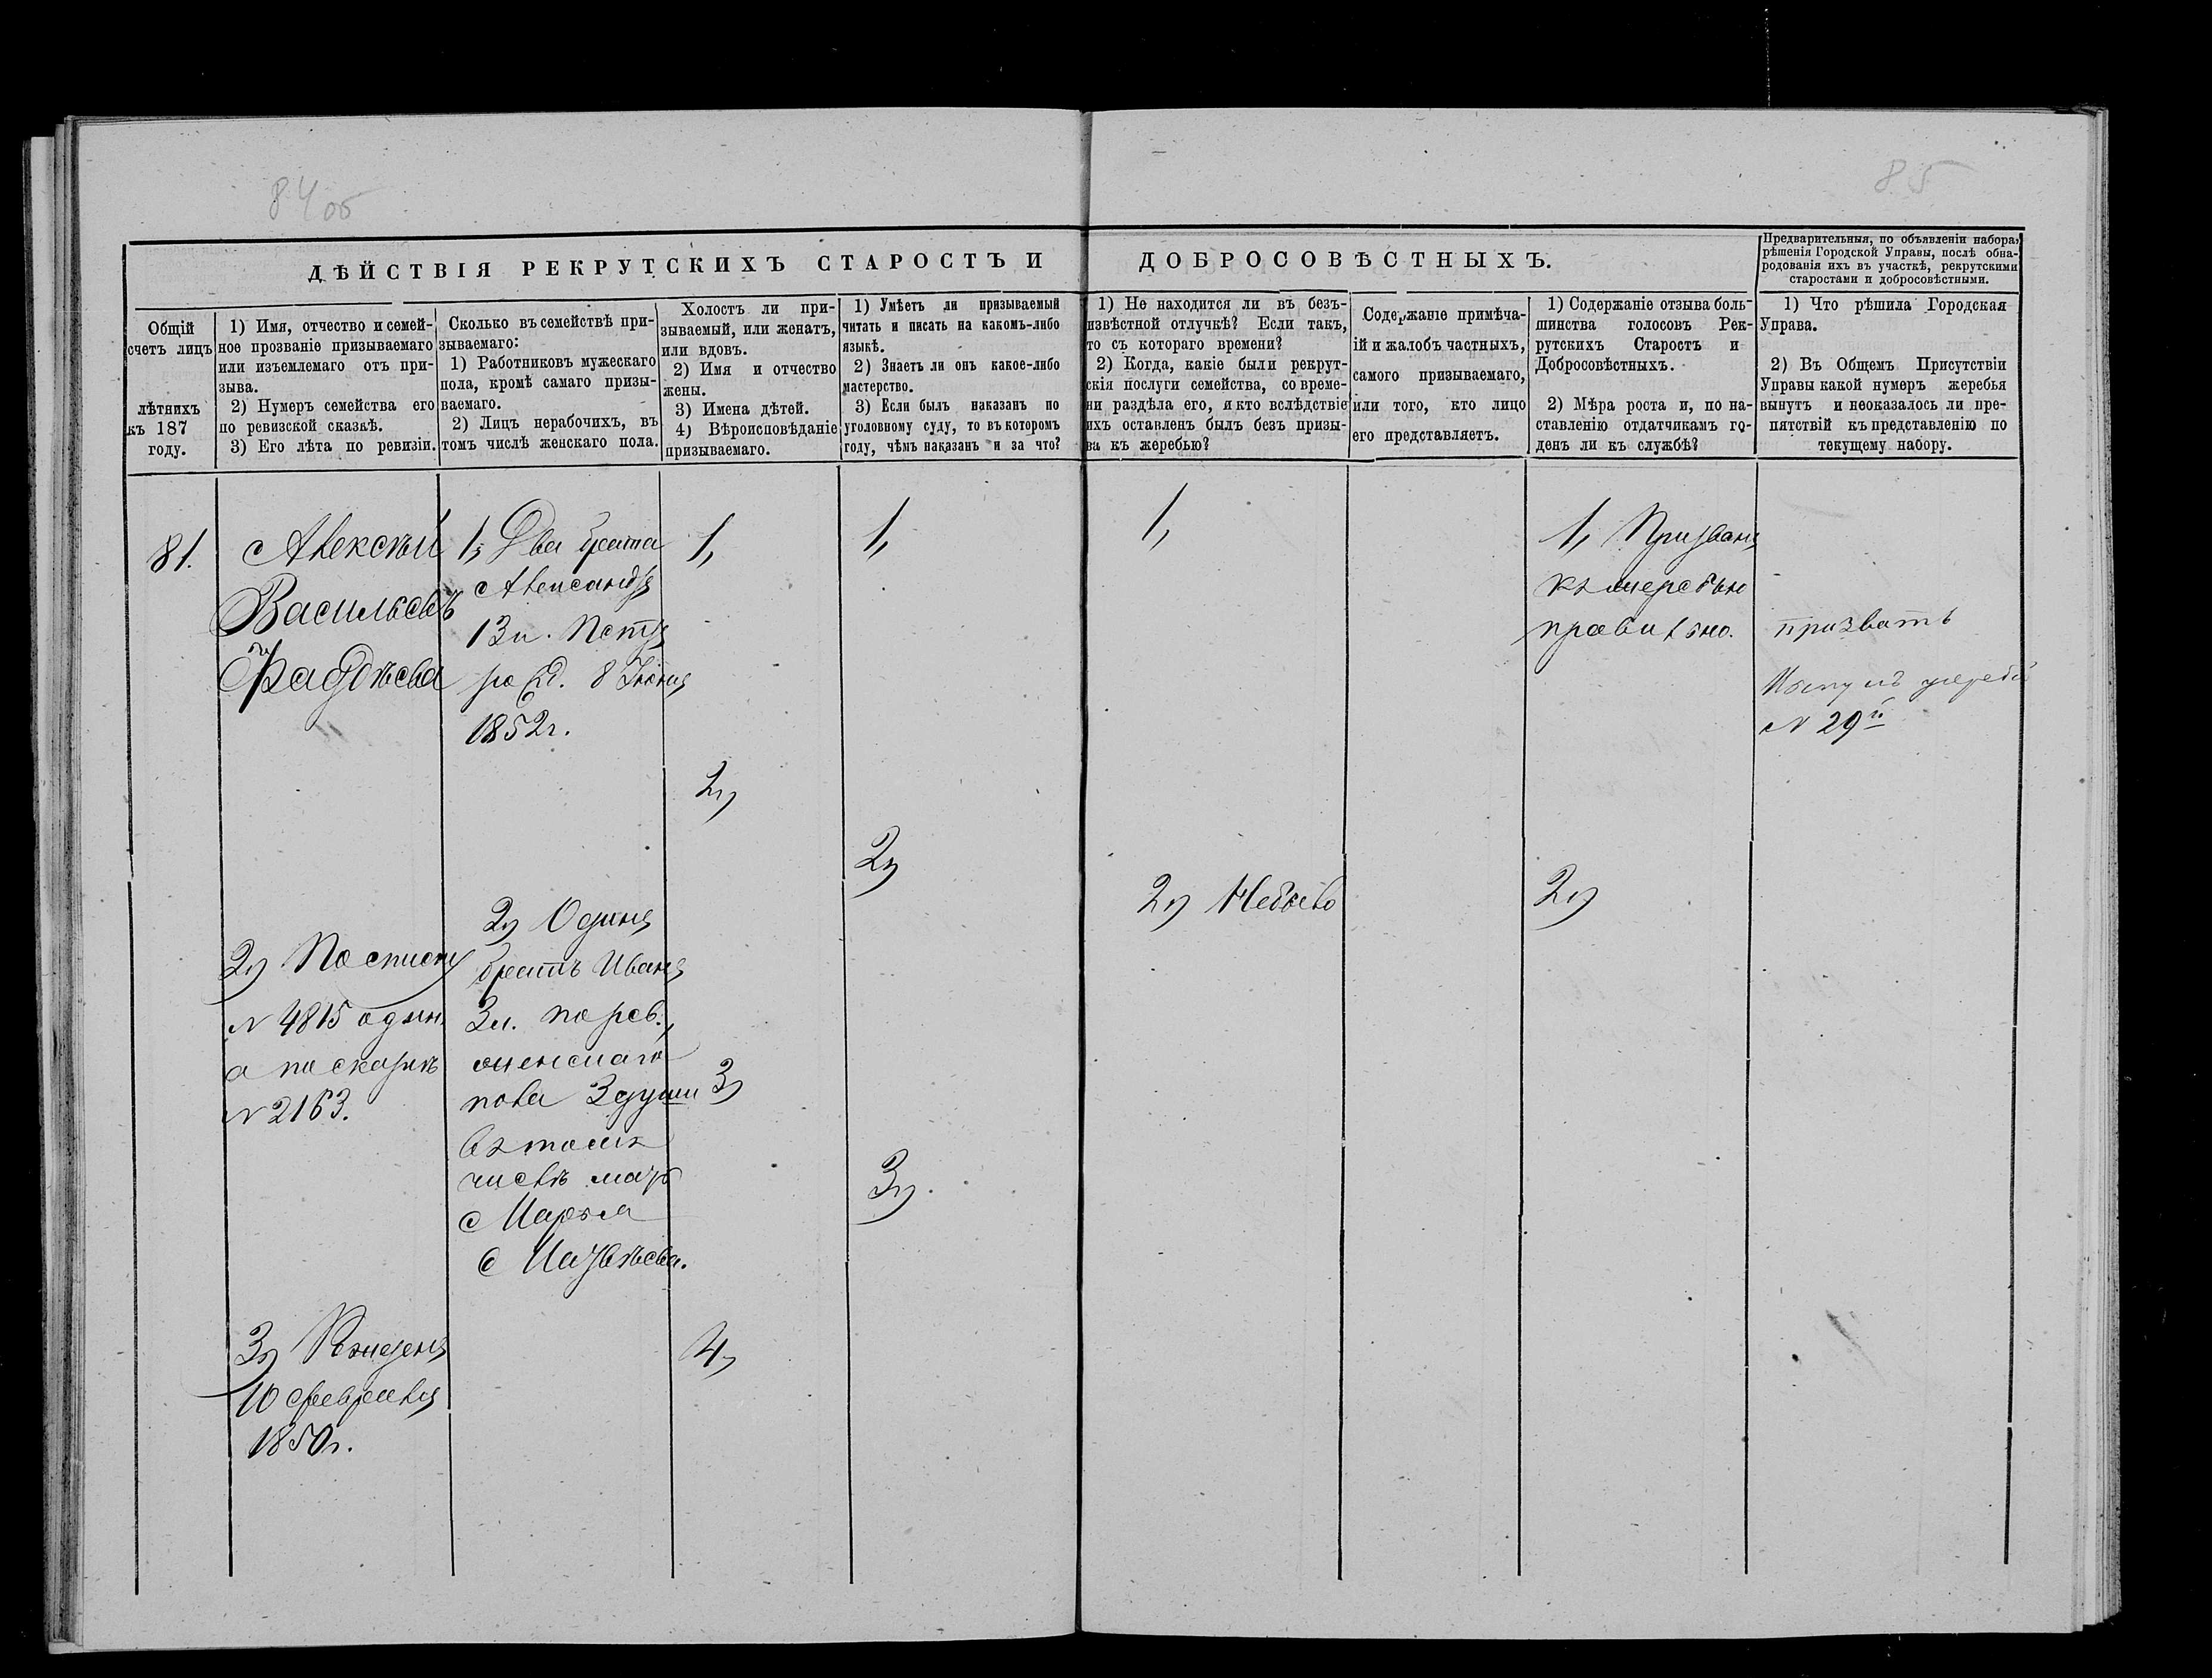 84об
85
ДѢЙСТВІЯ РЕКРУТСКИХЪ СТАРОСТЪ И ДОБРОСОВѢСТНЫХЪ.
Предварительныя, по объявленіи набора,
рѣшенія Городской Управы, послѣ обна-
родованія ихъ въ участкѣ, рекрутскими
старостами и добросовѣстными.
Общій
счетъ лицъ
лѣтнихъ
къ 187
году.
1) Имя, отчество и семей-
ное прозваніе призываемаго
или изъемлемаго отъ при-
зыва.
2) Нумеръ семейства его
по ревизской сказкѣ.
3) Его лѣта по ревизіи.
Сколько въ семействѣ при-
зываемаго:
1) Работниковъ мужескаго
пола, кромѣ самаго призы-
ваемаго.
2) Лицъ нерабочихъ, въ
томъ числѣ женскаго пола.
Холостъ ли при-
зываемый, или женатъ,
или вдовъ.
2) Имя и отчество
жены.
3) Имена дѣтей.
4) Вѣроисповѣданіе
призываемаго.
1) Умѣетъ ли призываемый
читать и писать на какомъ-либо
языкѣ.
2) Знаетъ ли онъ какое-либо
мастерство.
3) Если былъ наказанъ по
уголовному суду, то въ которомъ
году, чѣмъ наказанъ и за что?
1) Не находится ли въ безъ-
извѣстной отлучкѣ? Если такъ,
то съ котораго времени?
2) Когда, какіе были рекрут-
скія послуги семейства, со време-
ни раздѣла его, и кто вслѣдствіе
ихъ оставленъ былъ безъ призы-
ва къ жеребью?
Содержаніе примѣча-
ій и жалобъ частныхъ,
самого призываемаго,
или того, кто лицо
его представляетъ.
1) Содержаніе отзыва боль-
шинства голосовъ Рек-
рутскихъ Старостъ и
Добросовѣстныхъ.
2) Мѣра роста и, по на-
ставленію отдатчикамъ го-
денъ ли къ службѣ?
1) Что рѣшила Городская
Управа.
2) Въ Общемъ Присутствіи
Управы какой нумеръ жеребья
вынутъ и неоказалось ли пре-
пятствій къ представленію по
текущему набору.
81.
Алексѣй
Васильевъ
Фаддѣева
2) По списку
№ 4815 один.
а по сказкѣ
№ 2163.
3) Рожденъ
10 февраля
1850г.
1, Два брата
Александръ
13л. Петръ
рожд. 8 Іюня
1852г.
2) Одинъ
братъ Иванъ
3л. по рев.,
женскаго
пола 3 души
въ томъ
числѣ мать
Марѳа
Матвѣева.
1,
2)
3)
4,
1,
2)
3)
1,
2) Небыло
1, Призванъ
къ жеребью
правильно.
2)
призвать
Вынулъ жребій
№ 29й